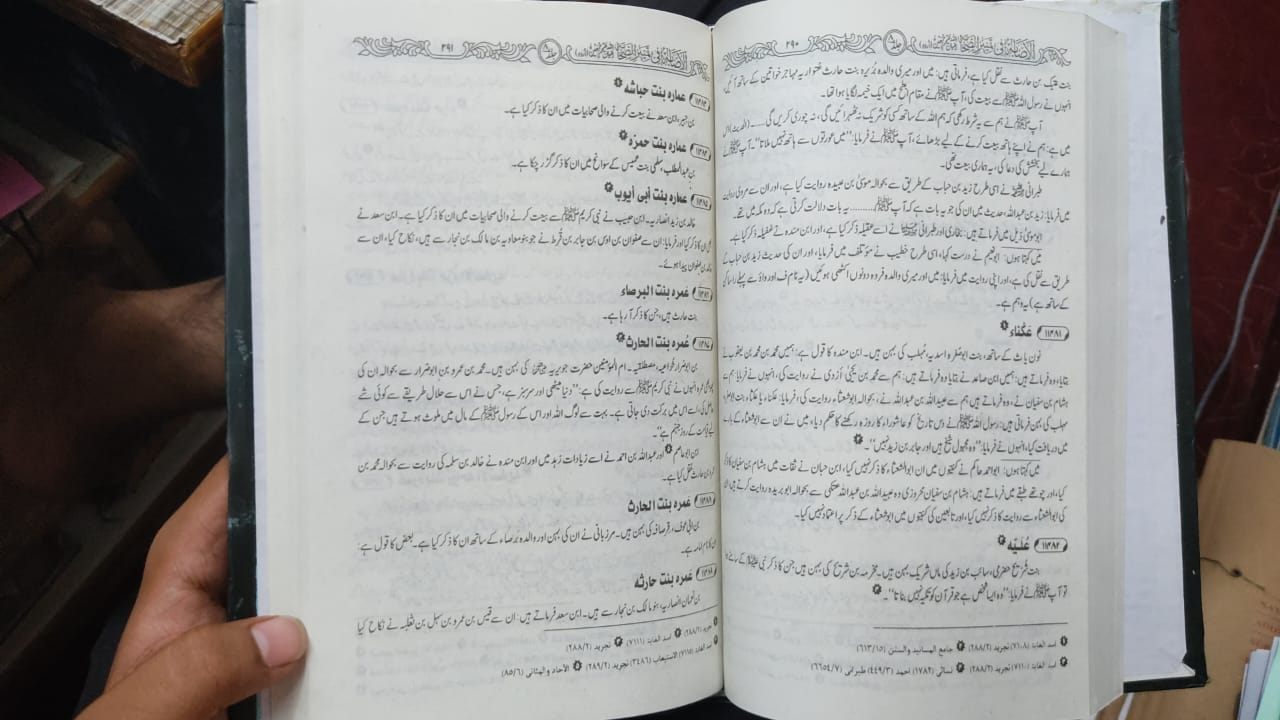 الاصابة فی تمییز الصحابة (اردو) جلد ۸ ۲۹۰
بنت عتیک بن حارث سے نقل کیا ہے، فرماتی ہیں: میں اور میری والدہ بنت حارث مہاجر خواتین کے ساتھ آئیں
انہوں نے رسول اللہ ﷺ سے بیعت کی، آپ ﷺ نے مقام ابطح میں ایک خیمہ لگایا ہوا تھا۔
آپ ﷺ نے ہم سے یہ شرط رکھی کہ ہم اللہ کے ساتھ کسی کو شریک نہ ٹھہرائیں گی، نہ چوری کریں گی ..... (الحدیث) اس
میں ہے: ہم نے اپنے ہاتھ بیعت کرنے کے لیے بڑھائے، آپ ﷺ نے فرمایا: ”میں عورتوں سے ہاتھ نہیں ملاتا“۔ آپ ﷺ نے
ہمارے لیے بخشش کی دعا کی، یہ ہماری بیعت تھی۔
طبرانی نے اسی طرح زید بن حباب کے طریق سے بحوالہ موسیٰ بن عبیدہ روایت کیا ہے، اور ان سے مروی روایت
میں فرمایا: زید بن عبداللہ، حدیث میں ان کی جو یہ بات ہے کہ آپ ﷺ ......... یہ بات دلالت کرتی ہے کہ وہ مکہ میں تھے۔
ابوموسیٰ ذیل میں فرماتے ہیں: بخاری اور طبرانی نے اسے عقیلہ ذکر کیا ہے، اور ابن مندہ نے غفیلہ ذکر کیا ہے۔
میں کہتا ہوں: ابونعیم نے درست کہا، اسی طرح خطیب نے مؤتلف میں فرمایا، اور ان کی حدیث زید بن حباب کے
طریق سے نقل کی ہے، اور اپنی روایت میں فرمایا: میں اور میری والدہ فروہ دونوں اکٹھی ہوئیں (یہ نام ف اور واؤ سے پہلے راساکن
کے ساتھ ہے) یہ وہم ہے۔
۱۱۴۸۱ عکناء
نون یا ث کے ساتھ، بنت ابوصفرہ اسدیہ، مہلب کی بہن ہیں۔ ابن مندہ کا قول ہے: ہمیں محمد بن محمد بن یعقوب نے
بتایا، وہ فرماتے ہیں: ہمیں ابن صاعد نے بتایا وہ فرماتے ہیں: ہم سے محمد بن یحییٰ اَزدی نے روایت کی، انہوں نے فرمایا: ہم سے
ہشام بن سفیان نے، وہ فرماتے ہیں ہم سے عبیداللہ بن عبداللہ نے، بحوالہ ابوشعثاء روایت کی، فرمایا: عکناء یا عکثاء بنت ابوصفرہ
مہلب کی بہن فرماتی ہیں: رسول اللہ ﷺ نے دس تاریخ کو عاشوراء کا روزہ رکھنے کا حکم دیا، میں نے ان سے ابوشعثاء کے بارے
میں دریافت کیا، انہوں نے فرمایا: ”وہ مجہول شیخ ہیں اور جابر بن زید نہیں“۔
میں کہتا ہوں: ابواحمد حاکم نے کنیتوں میں ان ابوالشعثاء کا ذکر نہیں کیا، ابن حبان نے ثقات میں ہشام بن سفیان کا ذکر
کیا، اور چوتھے طبقے میں فرماتے ہیں: ہشام بن سفیان مَروزی وہ عبیداللہ بن عبداللہ عتکی سے بحوالہ ابوبریدہ روایت کرتے ہیں ان
کی ابوالشعثاء سے روایت کا ذکر نہیں کیا، اور تابعین کی کنیتوں میں ابوشعثاء کے ذکر پر اعتماد نہیں کیا۔
۱۱۴۸۲ عُلَیّہ
بنت شریح حضرمی، سائب بن زید کی ماں شریک بہن ہیں۔ مخرمہ بن شریح کی بہن ہیں جن کا ذکر نبی ﷺ کے سامنے ہوا
تو آپ ﷺ نے فرمایا: ”وہ ایسا شخص ہے جو قرآن کو تکیہ نہیں بناتا“۔
۱ اسد الغابة (۷۱۰۸) تجرید (۲۸۸/۲) ۲ جامع المسانید والسنن (۶۱۳/۱۵)
۳ اسد الغابة (۷۱۱۰) تجرید (۲۸۸/۲) ۴ نسائی (۱۷۸۲) احمد (۴۴۹/۳) طبرانی (۶۶۵۴/۷)
الاصابة فی تمییز الصحابة (اردو) جلد ۸ ۲۹۱
۱۱۴۸۳ عمارہ بنت حباشہ
بن جبیر، ابن سعد نے بیعت کرنے والی صحابیات میں ان کا ذکر کیا ہے۔
۱۱۴۸۴ عمارہ بنت حمزہ
بن عبدالمطلب، سلمیٰ بنت عمیس کے سوانح میں ان کا ذکر گزر چکا ہے۔
۱۱۴۸۵ عمارہ بنت أبی أیوب
خالد بن زید انصاریہ۔ ابن حبیب نے نبی کریم ﷺ سے بیعت کرنے والی صحابیات میں ان کا ذکر کیا ہے۔ ابن سعد نے
ان کا ذکر کیا اور فرمایا: ان سے صفوان بن اوس بن جابر بن قُرط نے جو بنو معاویہ بن مالک بن نجار سے ہیں، نکاح کیا، ان سے
خالد بن صفوان پیدا ہوئے۔
۱۱۴۸۶ عَمرہ بنت البرصاء
بنت حارث ہیں، جن کا ذکر آ رہا ہے۔
۱۱۴۸۷ عَمرہ بنت الحارث
بن ابوضرار خزاعیہ، مصطلقیہ۔ ام المؤمنین حضرت جویریہ کی بہن ہیں۔ محمد بن عمرو بن ابوضرار سے بحوالہ ان کی
پھوپھی عمرہ انہوں نے نبی کریم ﷺ سے روایت کی ہے: ”دنیا میٹھی اور سرسبز ہے، جس نے اس سے حلال طریقے سے کوئی شے
حاصل کی، اسے اس میں برکت دی جاتی ہے۔ بہت سے لوگ اللہ اور اس کے رسول ﷺ کے مال میں ملوث ہوتے ہیں جن کے
لیے قیامت کے روز جہنم ہے“۔
ابن ابوعاصم اور عبداللہ بن احمد نے اسے زیادات زہد میں اور ابن مندہ نے خالد بن سلمہ کی روایت سے بحوالہ محمد بن
عمرو بن حارث نقل کیا ہے۔
۱۱۴۸۸ عَمرہ بنت الحارث
بن ابی عوف، قرصافہ کی بہن ہیں۔ مرزبانی نے ان کی بہن اور والدہ بَرصاء کے ساتھ ان کا ذکر کیا ہے۔ بعض کا قول ہے:
ان کا نام امامہ ہے۔
۱۱۴۸۹ عَمرہ بنت حارثہ
بن نعمان انصاریہ، بنو مالک بن نجار سے ہیں۔ ابن سعد فرماتے ہیں: ان سے قیس بن عمرو بن سہل بن ثعلبہ نے نکاح کیا
۱ تجرید (۲۸۸/۲) ۲ اسد الغابة (۷۱۱۱) ۳ تجرید (۲۸۸/۲)
۴ اسد الغابة (۷۱۱۵) الاستیعاب (۳۴۸۶) تجرید (۲۸۹/۲) الآحاد والمثانی (۸۵/۶)